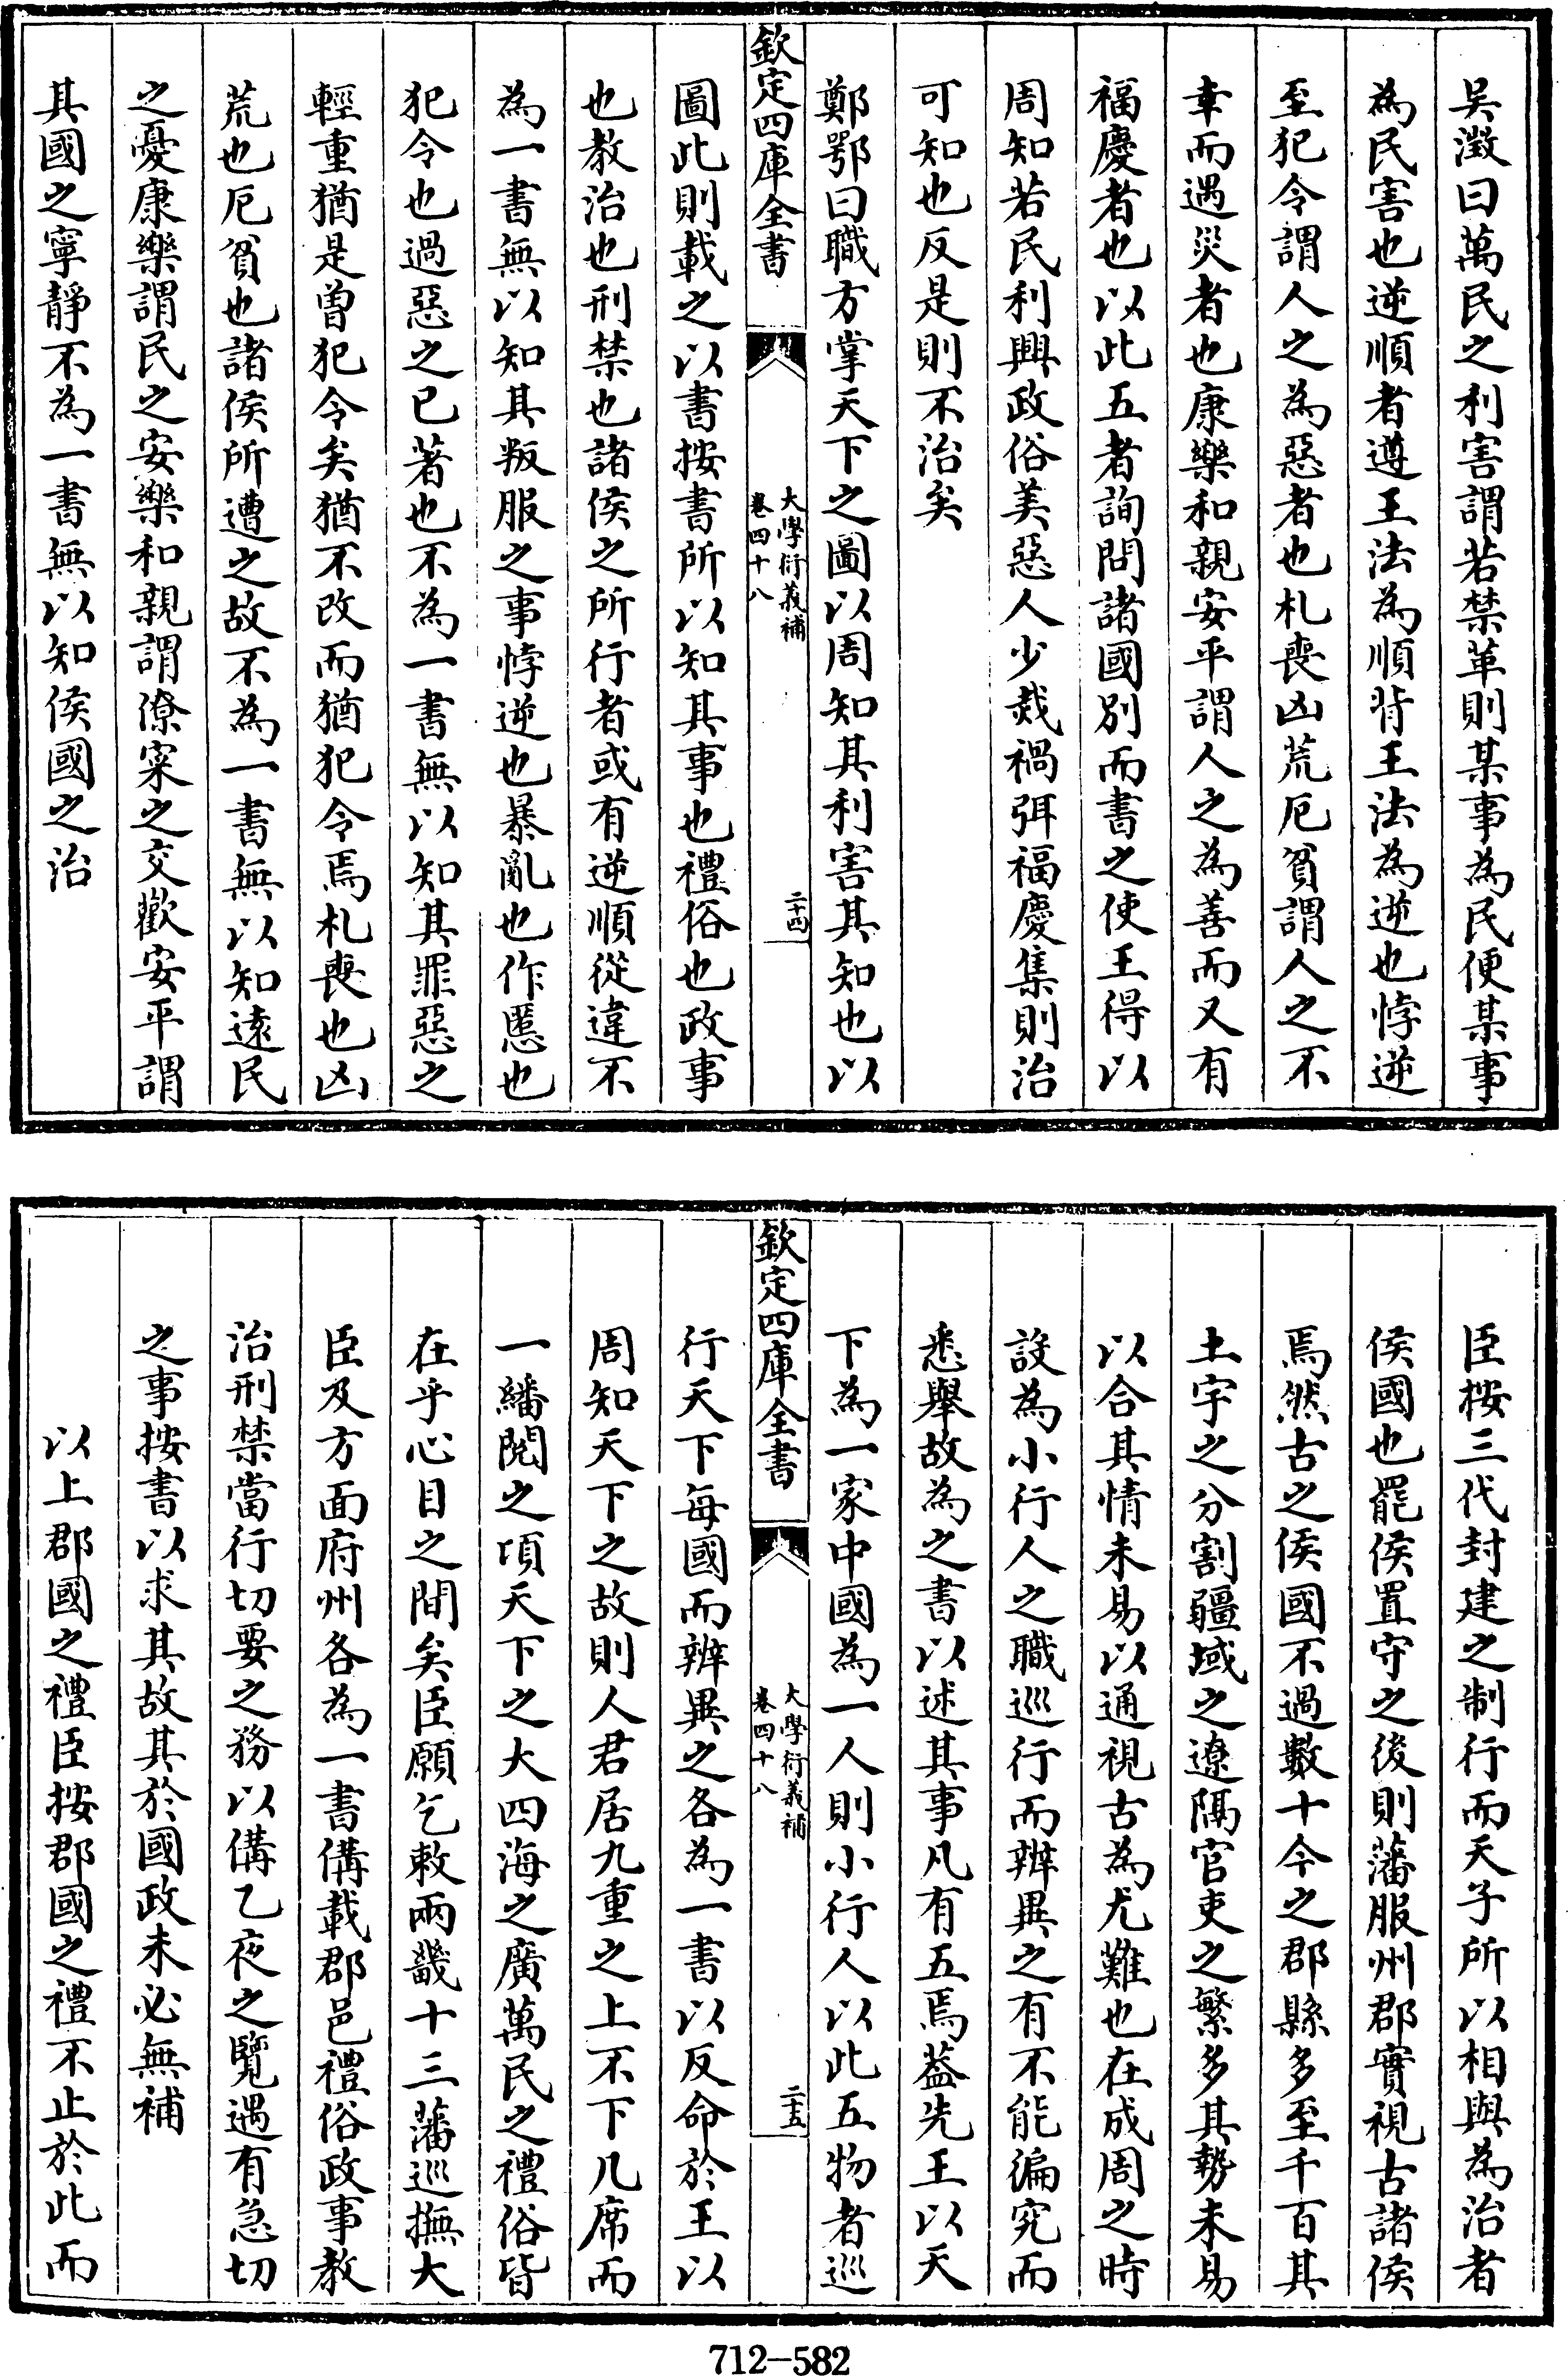 吳澂曰萬民之利害謂若禁革則某事為民便某事
為民害也逆順者遵王法為順背王法為逆也悖逆
至犯令謂人之為惡者也札喪凶荒厄貧謂人之不
幸而遇災者也康樂和親安平謂人之為善而又有
福慶者也以此五者詢問諸國別而書之使王得以
周知若民利興政俗美惡人少烖禍弭福慶集則治
可知也反是則不治矣
鄭鄂曰職方掌天下之圖以周知其利害其知也以
欽定四庫全書
大學衍義補
卷四十八
二十四
圖此則載之以書按書所以知其事也禮俗也政事
也教治也刑禁也諸侯之所行者或有逆順從違不
為一書無以知其叛服之事悖逆也暴亂也作慝也
犯令也過惡之已著也不為一書無以知其罪惡之
輕重猶是曾犯令矣猶不改而猶犯令焉札喪也凶
荒也厄貧也諸侯所遭之故不為一書無以知遠民
之憂康樂謂民之安樂和親謂僚寀之交歡安平謂
其國之寧靜不為一書無以知侯國之治
臣按三代封建之制行而天子所以相與為治者
侯國也罷侯置守之後則藩服州郡實視古諸侯
焉然古之侯國不過數十今之郡縣多至千百其
土宇之分割疆域之遼隔官吏之繁多其勢未易
以合其情未易以通視古為尤難也在成周之時
設為小行人之職巡行而辨異之有不能徧究而
悉舉故為之書以述其事凡有五焉葢先王以天
下為一家中國為一人則小行人以此五物者巡
欽定四庫全書
大學衍義補
卷四十八
二十五
行天下每國而辨異之各為一書以反命於王以
周知天下之故則人君居九重之上不下几席而
一繙閱之項天下之大四海之廣萬民之禮俗皆
在乎心目之間矣臣願乞敕兩畿十三藩巡撫大
臣及方面府州各為一書備載郡邑禮俗政事教
治刑禁當行切要之務以備乙夜之覽遇有急切
之事按書以求其故其於國政未必無補
以上郡國之禮臣按郡國之禮不止於此而
712-582